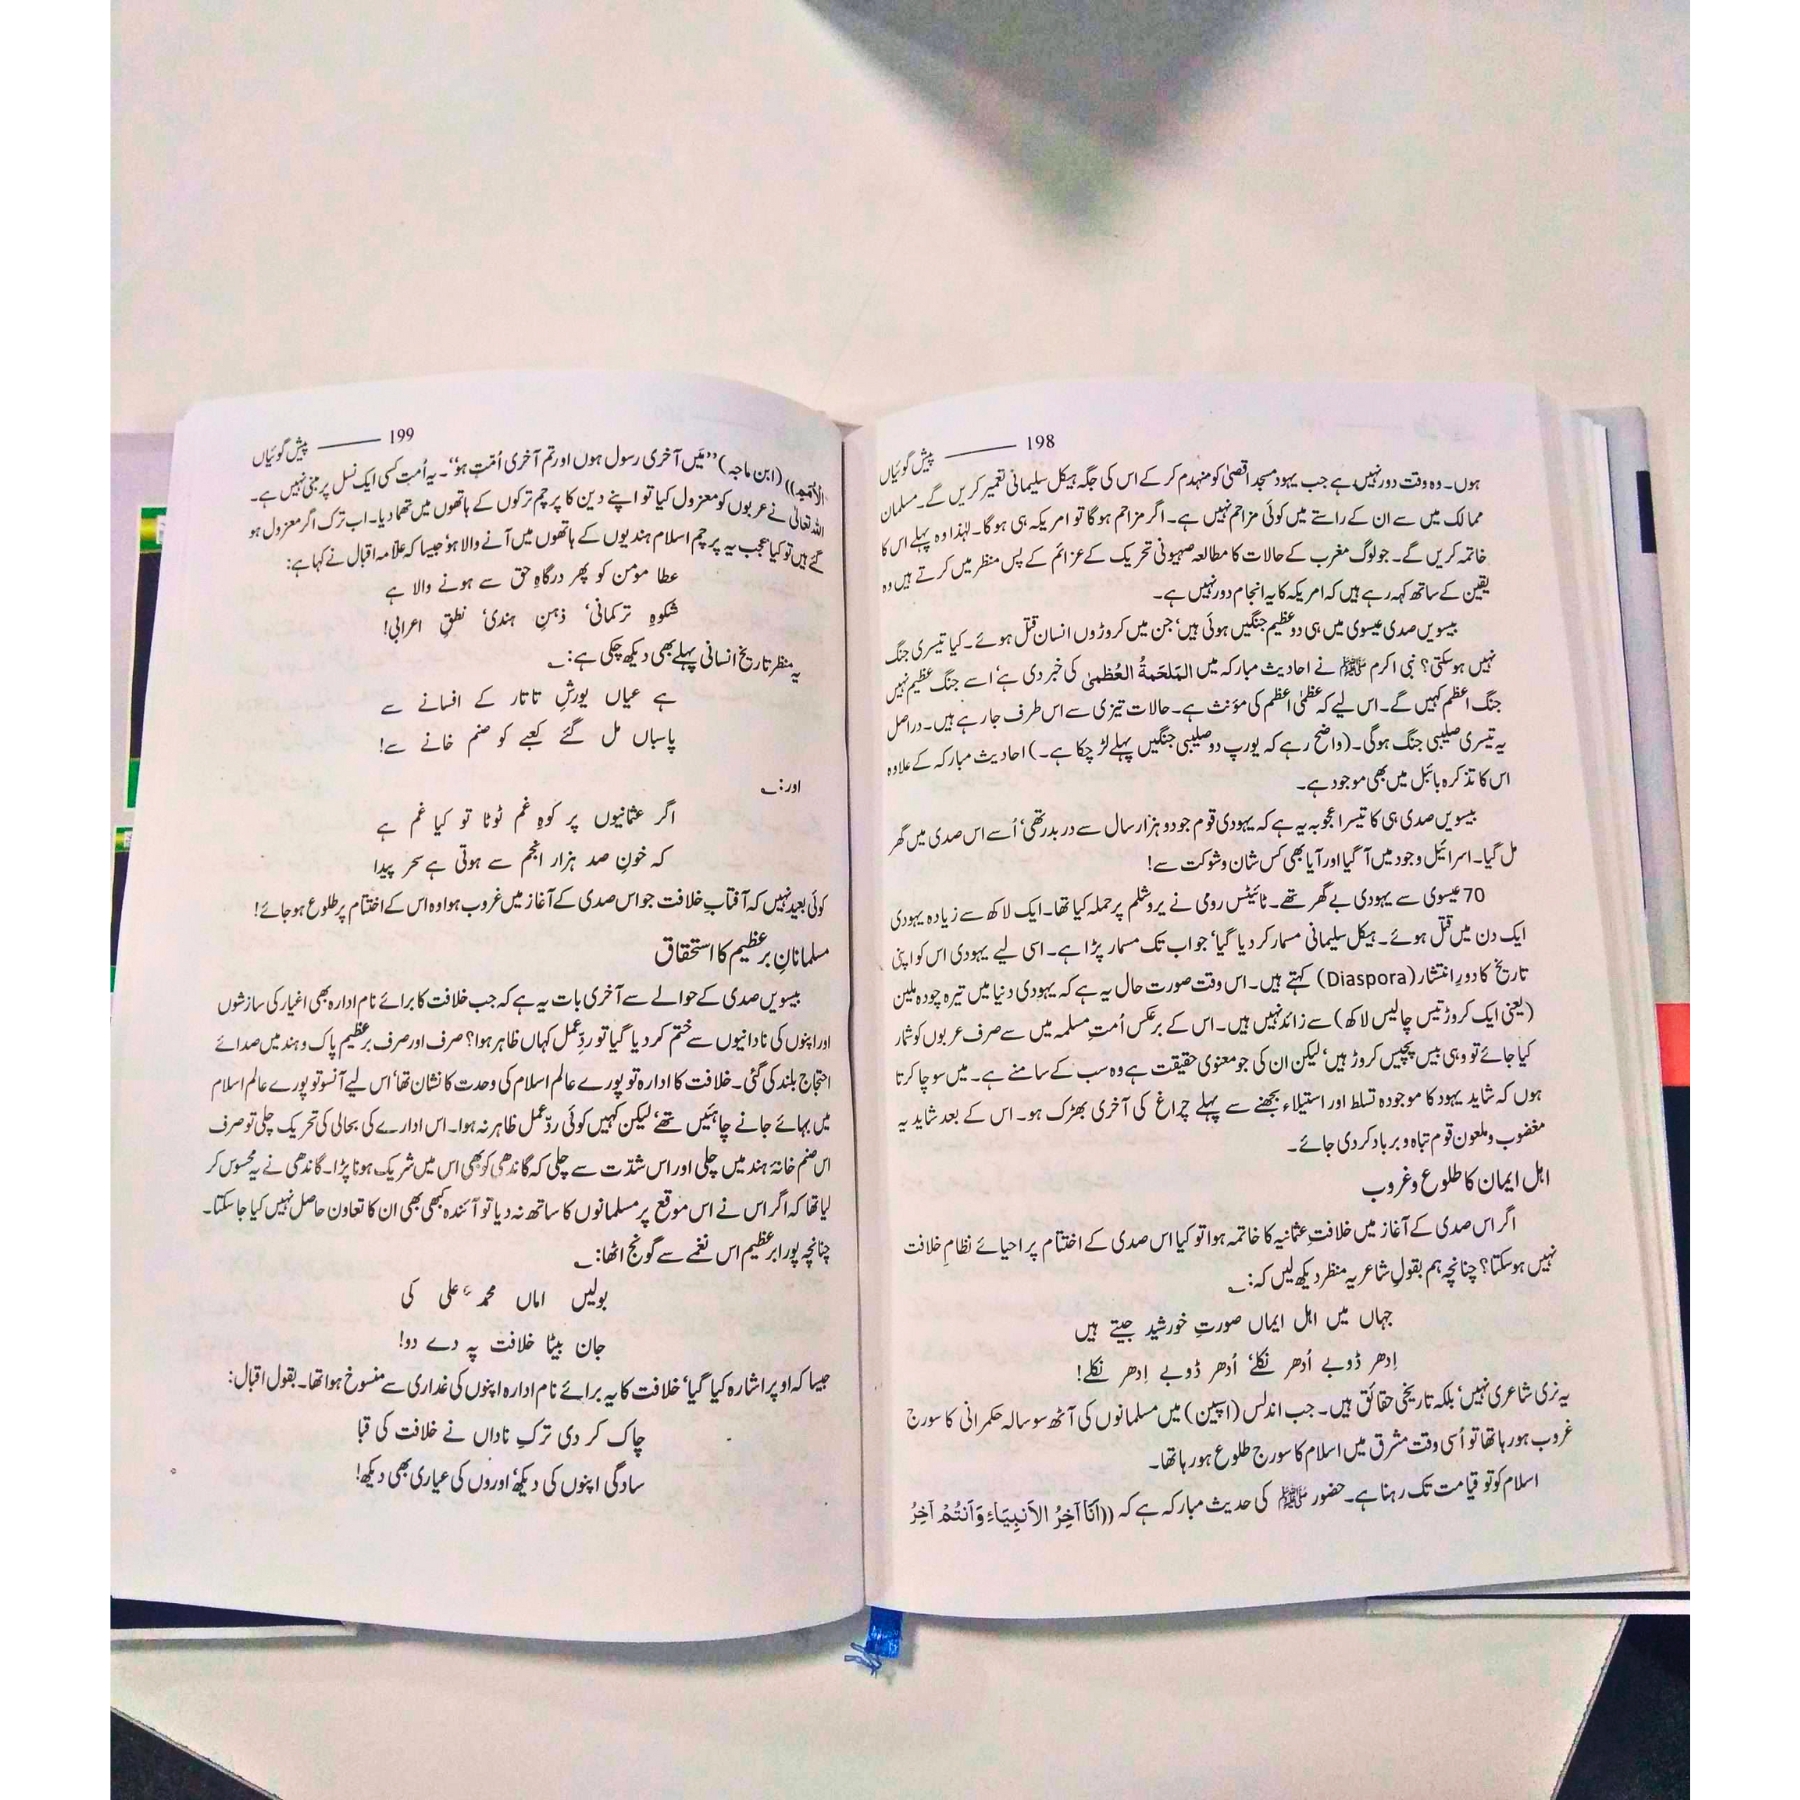 198 ——— پیش گوئیاں
ہوں۔ وہ وقت دور نہیں ہے جب یہود مسجد اقصیٰ کو منہدم کر کے اس کی جگہ ہیکل سلیمانی تعمیر کریں گے۔ مسلمان
ممالک میں سے ان کے راستے میں کوئی مزاحم نہیں ہے۔ اگر مزاحم ہو گا تو امریکہ ہی ہو گا۔ لہٰذا وہ پہلے اس کا
خاتمہ کریں گے۔ جو لوگ مغرب کے حالات کا مطالعہ صہیونی تحریک کے عزائم کے پس منظر میں کرتے ہیں وہ
یقین کے ساتھ کہہ رہے ہیں کہ امریکہ کا یہ انجام دور نہیں ہے۔
بیسویں صدی عیسوی میں ہی دو عظیم جنگیں ہوئی ہیں‘ جن میں کروڑوں انسان قتل ہوئے۔ کیا تیسری جنگ
نہیں ہو سکتی؟ نبی اکرم ﷺ نے احادیث مبارکہ میں المَلْحَمةُ العُظمیٰ کی خبر دی ہے‘ اسے جنگ عظیم نہیں
جنگ اعظم کہیں گے۔ اس لیے کہ عظمٰی‘ اعظم کی مؤنث ہے۔ حالات تیزی سے اس طرف جا رہے ہیں۔ دراصل
یہ تیسری صلیبی جنگ ہو گی۔ (واضح رہے کہ یورپ دو صلیبی جنگیں پہلے لڑ چکا ہے۔) احادیث مبارکہ کے علاوہ
اس کا تذکرہ بائبل میں بھی موجود ہے۔
بیسویں صدی ہی کا تیسرا عجوبہ یہ ہے کہ یہودی قوم جو دو ہزار سال سے در بدر تھی‘ اُسے اس صدی میں گھر
مل گیا۔ اسرائیل وجود میں آ گیا اور آیا بھی کس شان و شوکت سے!
70 عیسوی سے یہودی بے گھر تھے۔ ٹائیٹس رومی نے یروشلم پر حملہ کیا تھا۔ ایک لاکھ سے زیادہ یہودی
ایک دن میں قتل ہوئے۔ ہیکل سلیمانی مسمار کر دیا گیا‘ جو اب تک مسمار پڑا ہے۔ اسی لیے یہودی اس کو اپنی
تاریخ کا دورِ انتشار (Diaspora) کہتے ہیں۔ اس وقت صورت حال یہ ہے کہ یہودی دنیا میں تیرہ چودہ ملین
(یعنی ایک کروڑ تیس چالیس لاکھ) سے زائد نہیں ہیں۔ اس کے برعکس اُمت مسلمہ میں سے صرف عربوں کو شمار
کیا جائے تو وہی بیس پچیس کروڑ ہیں‘ لیکن ان کی جو معنوی حقیقت ہے وہ سب کے سامنے ہے۔ میں سوچا کرتا
ہوں کہ شاید یہود کا موجودہ تسلط اور استیلاء بجھنے سے پہلے چراغ کی آخری بھڑک ہو۔ اس کے بعد شاید یہ
مغضوب و ملعون قوم تباہ و برباد کر دی جائے۔
اہل ایمان کا طلوع و غروب
اگر اس صدی کے آغاز میں خلافتِ عثمانیہ کا خاتمہ ہوا تو کیا اس صدی کے اختتام پر احیائے نظامِ خلافت
نہیں ہو سکتا؟ چنانچہ ہم بقولِ شاعر یہ منظر دیکھ لیں کہ: ؎
جہاں میں اہل ایماں صورتِ خورشید جیتے ہیں
اِدھر ڈوبے اُدھر نکلے‘ اُدھر ڈوبے اِدھر نکلے!
یہ نری شاعری نہیں‘ بلکہ تاریخی حقائق ہیں۔ جب اندلس (اسپین) میں مسلمانوں کی آٹھ سو سالہ حکمرانی کا سورج
غروب ہو رہا تھا تو اُسی وقت مشرق میں اسلام کا سورج طلوع ہو رہا تھا۔
اسلام کو تو قیامت تک رہنا ہے۔ حضور ﷺ کی حدیث مبارکہ ہے کہ ((اَنَا آخِرُ الاَنبِیَاءِ وَاَنْتُمْ آخِرُ
199 ——— پیش گوئیاں
الْاُمَمِ)) (ابن ماجہ) ”میں آخری رسول ہوں اور تم آخری اُمّت ہو“۔ یہ اُمت کسی ایک نسل پر مبنی نہیں ہے۔
اللہ تعالیٰ نے عربوں کو معزول کیا تو اپنے دین کا پرچم ترکوں کے ہاتھوں میں تھما دیا۔ اب ترک اگر معزول ہو
گئے ہیں تو کیا عجب یہ پرچم اسلام ہندیوں کے ہاتھوں میں آنے والا ہو‘ جیسا کہ علامہ اقبال نے کہا ہے:
عطا مومن کو پھر درگاہِ حق سے ہونے والا ہے
شکوہِ ترکمانی‘ ذہنِ ہندی‘ نطقِ اعرابی!
یہ منظر تاریخ انسانی پہلے بھی دیکھ چکی ہے: ؎
ہے عیاں یورشِ تاتار کے افسانے سے
پاسباں مل گئے کعبے کو صنم خانے سے!
اور: ؎
اگر عثمانیوں پر کوہِ غم ٹوٹا تو کیا غم ہے
کہ خونِ صد ہزار انجم سے ہوتی ہے سحر پیدا
کوئی بعید نہیں کہ آفتابِ خلافت جو اس صدی کے آغاز میں غروب ہوا وہ اس کے اختتام پر طلوع ہو جائے!
مسلمانانِ برعظیم کا استحقاق
بیسویں صدی کے حوالے سے آخری بات یہ ہے کہ جب خلافت کا برائے نام ادارہ بھی اغیار کی سازشوں
اور اپنوں کی نادانیوں سے ختم کر دیا گیا تو ردِّعمل کہاں ظاہر ہوا؟ صرف اور صرف برعظیم پاک و ہند میں صدائے
احتجاج بلند کی گئی۔ خلافت کا ادارہ تو پورے عالم اسلام کی وحدت کا نشان تھا‘ اس لیے آنسو تو پورے عالم اسلام
میں بہائے جانے چاہئیں تھے‘ لیکن کہیں کوئی ردّعمل ظاہر نہ ہوا۔ اس ادارے کی بحالی کی تحریک چلی تو صرف
اس صنم خانۂ ہند میں چلی اور اس شدّت سے چلی کہ گاندھی کو بھی اس میں شریک ہونا پڑا۔ گاندھی نے یہ محسوس کر
لیا تھا کہ اگر اس نے اس موقع پر مسلمانوں کا ساتھ نہ دیا تو آئندہ کبھی بھی ان کا تعاون حاصل نہیں کیا جا سکتا۔
چنانچہ پورا برعظیم اس نغمے سے گونج اٹھا: ؎
بولیں اماں محمد علی کی
جان بیٹا خلافت پہ دے دو!
جیسا کہ اوپر اشارہ کیا گیا‘ خلافت کا یہ برائے نام ادارہ اپنوں کی غداری سے منسوخ ہوا تھا۔ بقول اقبال:
چاک کر دی ترکِ ناداں نے خلافت کی قبا
سادگی اپنوں کی دیکھ‘ اوروں کی عیاری بھی دیکھ!